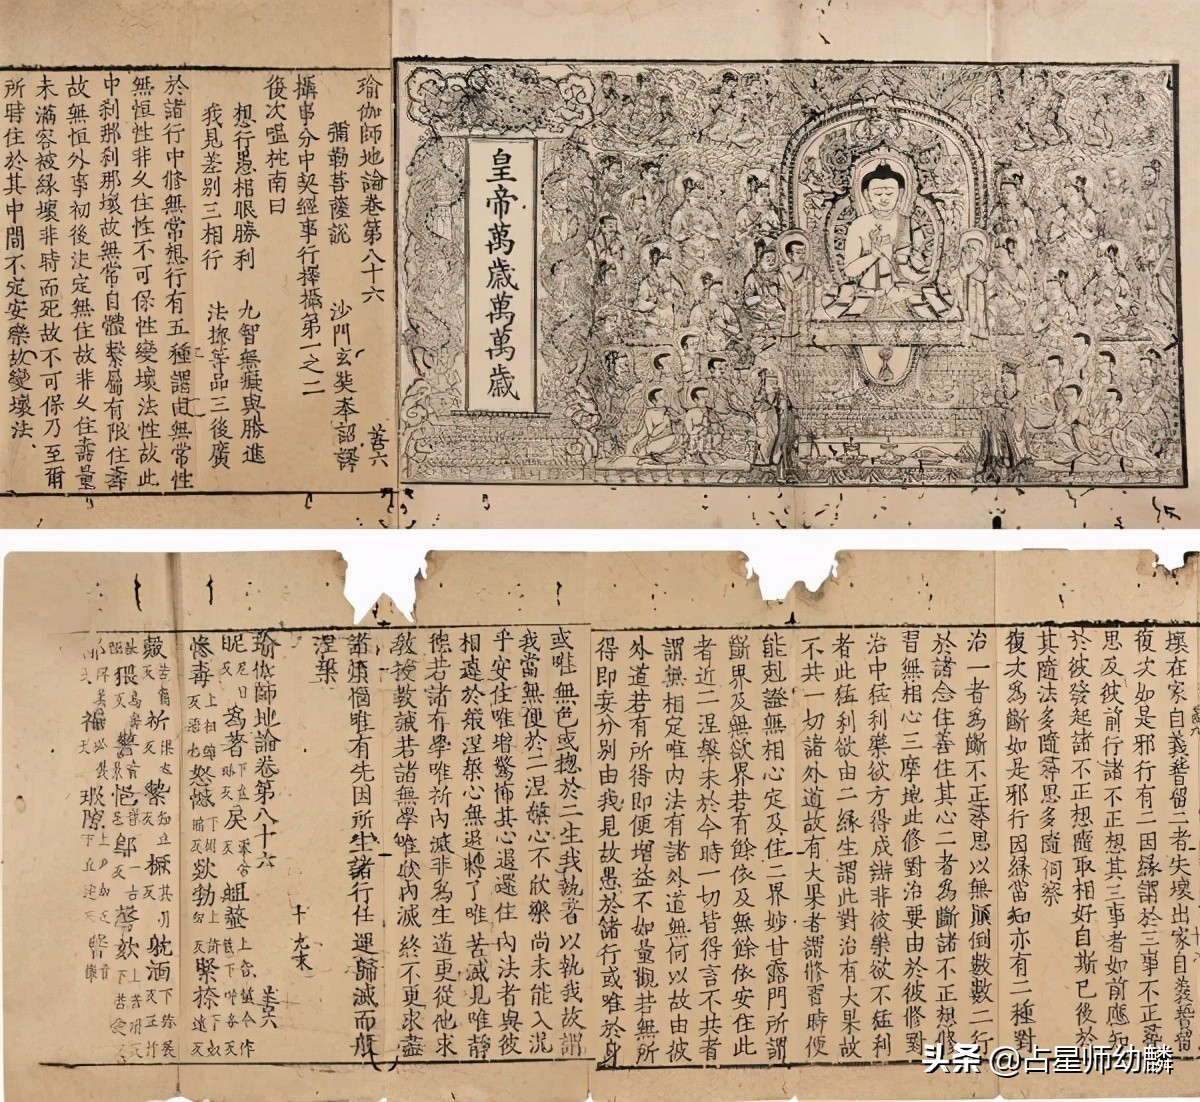 皇帝萬歲萬萬歲
瑜伽師地論卷第八十六 善六
彌勒菩薩說 沙門玄奘奉詔譯
攝事分中契經事行擇攝第一之二
復次嗢柁南曰
想行愚相眼勝利 九智無癡與勝進
我見差別三相行 法揔等品三後廣
於諸行中修無常想行有五種謂由無常性
無恒性非久住性不可保性變壞法性故此
中刹那刹那壞故無常自體繫屬有限住壽
故無恒外事初後決定無住故非久住壽量
未滿容被緣壞非時而死故不可保乃至爾
所時住於其中間不定安樂故變壞法
壞在家自義皆留二者失壞出家自義皆留
復次如是邪行有二因緣謂於三事不正尋
思及彼前行諸不正想其三事者如前應知
於彼發起諸不正想隨取相好自斯已後於
其隨法多隨尋思多隨伺察
復次為斷如是邪行因緣當知亦有二種對
治一者為斷不正尋思以無顛倒數數二行
於諸念住善住其心二者為斷諸不正想修
習無相心三摩地此修對治要由於彼修對
治中猛利樂欲方得成辦非彼樂欲不猛利
者此猛利欲由二緣生謂此對治有大果故
不共一切諸外道故有大果者謂修習時便
能剋證無相心定及住二界妙甘露門所謂
斷界及無欲界若有餘依及無餘依安住此
者近二涅槃未於今時一切皆得言不共者
謂無相定唯內法有諸外道無何以故由彼
外道若有所得即便增益不如量觀若無所
得即妄分別由我見故愚於諸行或唯於身
或唯無色或揔於二生我執著以執我故謂
我當無便於二涅槃心不欣樂尚未能入況
乎安住唯增驚怖其心退還住內法者與彼
相違於般涅槃心無退轉了唯苦滅見唯靜
德若諸有學唯祈內滅非為生道更從他求
教授教誡若諸無學唯欣內滅終不更求盡
諸煩惱唯有先因所生諸行任運歸滅而般
涅槃
十九末
瑜伽師地論卷第八十六 善六
頭条 @占星师幼麟